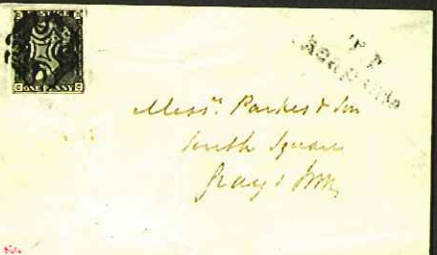 POSTAGE
ONE PENNY
C C
T.P
Messrs. Parkes & Son
South Square
Grays Inn